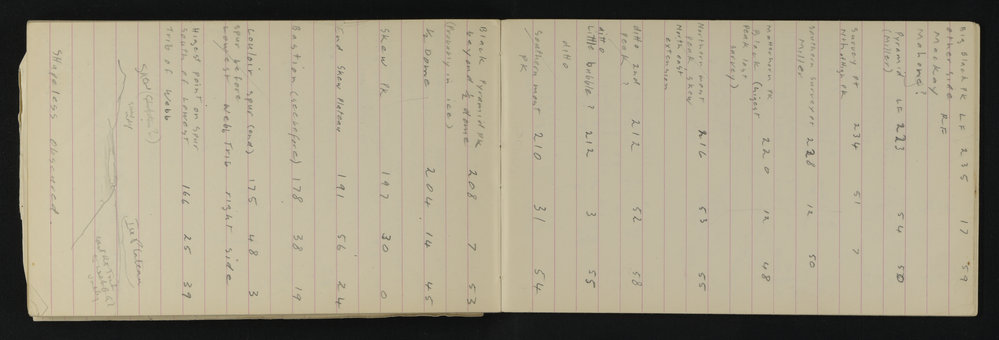 Big Black PK LF 235 17 59
other side RF
Mackay
Mahone?
Pyramid LF 223 54 50
(Miller)
Survey pt 234 51 7
Nth Mt high PK
Southern survey pt 228 12 50
Miller
Matterhorn PK 220 12 48
Black (higest
Peak last
survey)
Northern most 216 53 55
Peak Skew
North east
extension
ditto 2nd 212 52 58
Peak?
ditto
Little bubble? 212 3 55
ditto
Southern most 210 31 54
PK
Black Pyramid PK 208 7 53
beyond 1/2 dome
(Mostly in ice)
1/2 Dome 204 14 45
Skew PK 197 30 0
End Skew Plateau 191 56 24
Bastion (see before) 178 38 19
Couloir spur (end) 175 48 3
spur before
Lowest Webb Trib right side
Higest point on spur
South of Lowest 166 25 39
Trib of Webb
Spot
Ice Plateau
Shapeless observed.